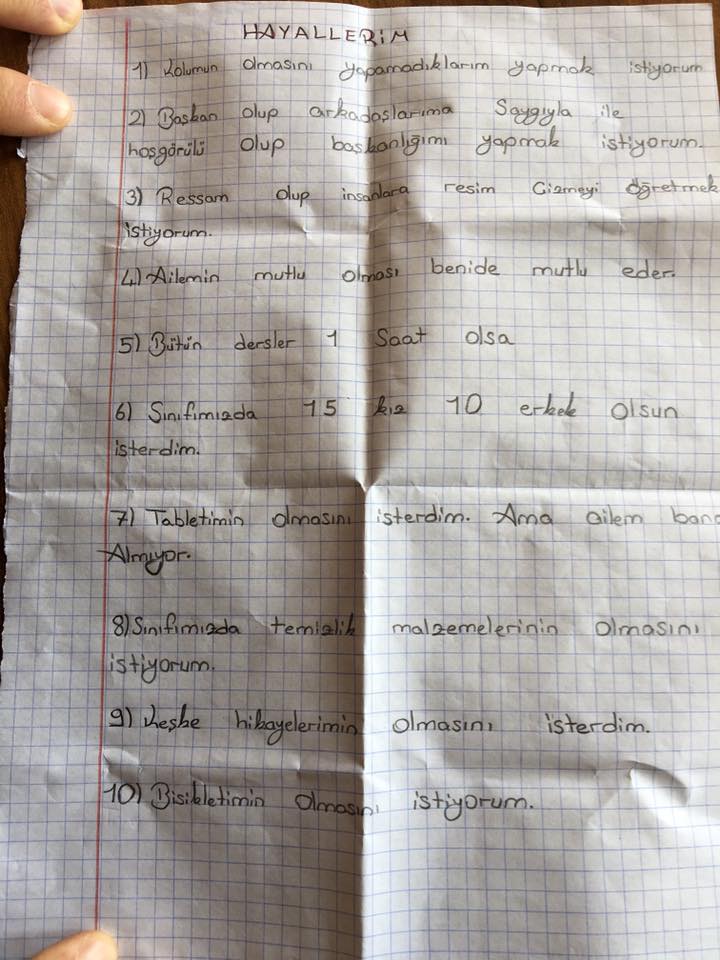 HAYALLERİM
1) Kolumun olmasını yapamadıklarım yapmak istiyorum
2) Başkan olup arkadaşlarıma Saygıyla ile
hoşgörülü olup başkanlığımı yapmak istiyorum.
3) Ressam olup insanlara resim Çizmeyi öğretmek
istiyorum.
4) Ailemin mutlu olması benide mutlu eder.
5) Bütün dersler 1 Saat olsa
6) Sınıfımızda 15 kız 10 erkek olsun
isterdim.
7) Tabletimin olmasını isterdim. Ama ailem bana
Almıyor.
8) Sınıfımızda temizlik malzemelerinin olmasını
istiyorum.
9) Keşke hikayelerimin olmasını isterdim.
10) Bisikletimin olmasını istiyorum.